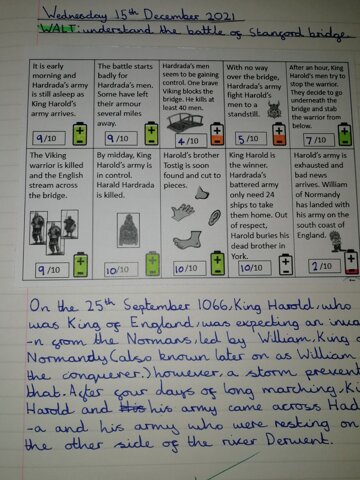 Wednesday 15th December 2021
WALT: understand the battle of Stanford bridge.
It is early
morning and
Hardrada's army
is still asleep as
King Harold's
army arrives.
9/10
The battle starts
badly for
Hardrada's men.
Some have left
their armour
several miles
away.
9/10
Hardrada's men
seem to be gaining
control. One brave
Viking blocks the
bridge. He kills at
least 40 men.
4/10
With no way
over the bridge,
Hardrada's army
fight Harold's
men to a
standstill.
5/10
After an hour, King
Harold's men try to
stop the warrior.
They decide to go
underneath the
bridge and stab
the warrior from
below.
7/10
The Viking
warrior is killed
and the English
stream across
the bridge.
9/10
By midday, King
Harold's army is
in control.
Harald Hardrada
is killed.
10/10
Harold's brother
Tostig is soon
found and cut to
pieces.
10/10
King Harold is
the winner.
Hardrada's
battered army
only need 24
ships to take
them home. Out
of respect,
Harold buries his
dead brother in
York.
10/10
Harold's army is
exhausted and
bad news
arrives. William
of Normandy
has landed with
his army on the
south coast of
England.
2/10
On the 25th September 1066, King Harold, who
was King of England, was expecting an inva
-n from the Normans, led by William, King o
Normandy (also known later on as William
the conquerer.) however, a storm prevent
that. After four days of long marching, Ki
Harold and his his army came across Had
-a and his army who were resting on
the other side of the river Derwent.